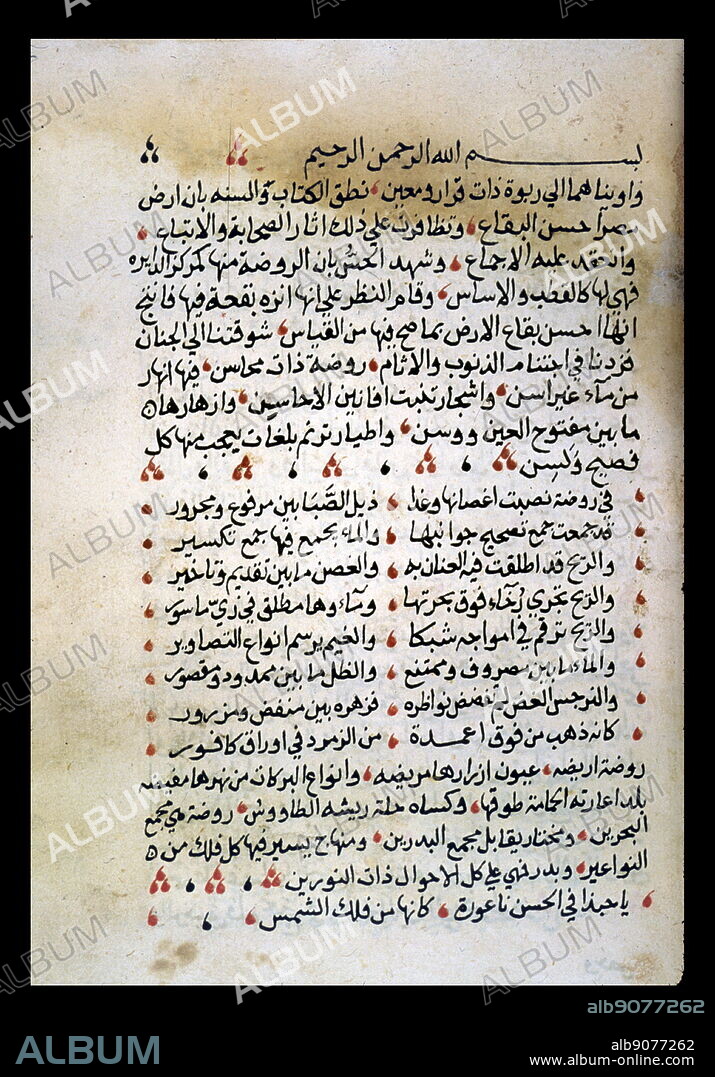 بسم الله الرحمن الرحيم
واويناهما الي ربوة ذات قرار ومعين نطق الكتاب والسنه بان ارض
مصر احسن البقاع وتظافرت علي ذلك اثار الصحابة والاتباع
وانعقد عليه الاجماع وشهد الحس بان الروضة منها كمركز الدايره
فهي لها كالقطب والاساس وقام النظر علي انها انزه بقعة فيها فانتج
انها احسن بقاع الارض بما صح فيها من القياس شوقتنا الي الجنان
فزدنا في اجتناب الذنوب والاثام روضة ذات محاسن فيها انهار
من ماء غير اسن واشجار تنبت افانين الاحاسين وازهارها
ما بين مفتوح العين ووسن واطيار ترنم بلغات يعجب منها كل
فصيح ولسن
في روضة نصبت اغصانها وغدا ذيل الصبا بين مرفوع ومجرور
قد جمعت جمع تصحيح جوانبها والماء يجمع فيها جمع تكسير
والريح قد اطلقت فيه العنان به والغصن ما بين تقديم وتاخير
والريح تجري رخاء فوق بحرتها وماءوها مطلق في زي ماسور
والريح ترقم في امواجه شبكا والغيم يرسم انواع التصاوير
والماء ما بين مصروف وممتنع والظل ما بين ممدود ومقصور
والنرجس الغض لم تغضض نواظره فزهره بين منفض ومزرور
كانه ذهب من فوق اعمدة من الزمرد في اوراق كافور
روضة اريضه عيون ازرارها مريضه وانواع البركات من نهرها مفيضه
بلد اعارته الحمامة طوقها وكساه حلة ريشه الطاووس روضة هي مجمع
البحرين ومختار يقابل مجمع البدرين ومنهاج يسير فيها كل فلك من
النواعير وبدر نهي علي كل الاحوال ذات النورين
يا حبذا في الحسن ناعورة كانها من فلك الشمس
ALBUM
alb9077262
ALBUM
alb9077262
www.album-online.com